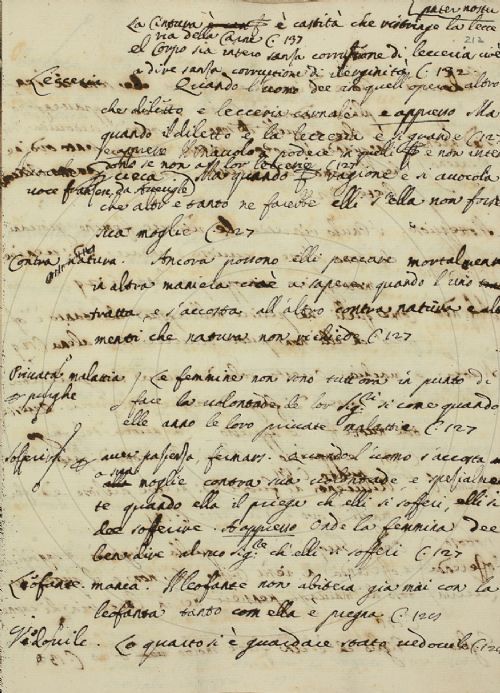 pater nostr
La Cintura è castità che ristringe la lecce
ria della Carne C. 137
212
el Corpo sia intero sanza corruttione di lecceria cioè
a dire sanza corruttione di verginità C. 132
Quando l'uomo dee in quell'opera altro
che diletto e lecceria carnale e appresso Ma
quando il diletto e la lecceria è sì grande C. 127
e non inten
dono se non a lor lecceria C. 127
cieca Ma quando ragione e si avocola
voce franzese, da Aveugle
che altro e tanto ne farebbe elli s'ella non fosse
sua moglie C. 127
Contra natura. Ancora possono elli peccare mortalmente
in altra maniera cioè a sapere quando l'uno
tratta, e s'accosta all'altro contra natura e altri
menti che natura non richiede C. 127
Privata malatia Le femmine non sono tutt'ora in punto di
purghe
fare la volontade de lor Sig.ri si come quando
elle anno le loro private malattie C. 127
Sofferirsi aver pazienza, fermars. Quando l'uomo s'accosta
a sua moglie contra sua volontade e spezialmen
te quando ella il priega ch'elli si sofferi, elli si
dee sofferire. Appresso Onde la femmina dee
ben dire al suo Sig.re ch'elli si sofferi C. 127
Leofante. manca. Il leofante non abitera gia mai con la
leofanta tanto com ella e pregna C.
Vedovile. Lo quarto si è guardare stato vedovile C.